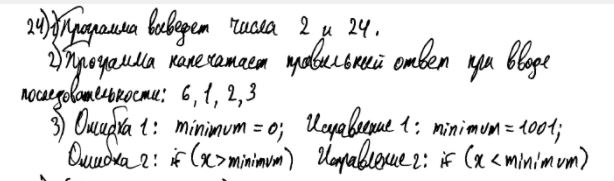 24) 1) Программа выведет числа 2 и 24.
2) Программа напечатает правильный ответ при вводе
последовательности: 6, 1, 2, 3
3) Ошибка 1: minimum = 0; Исправление 1: minimum = 1001;
Ошибка 2: if (x > minimum) Исправление 2: if (x < minimum)